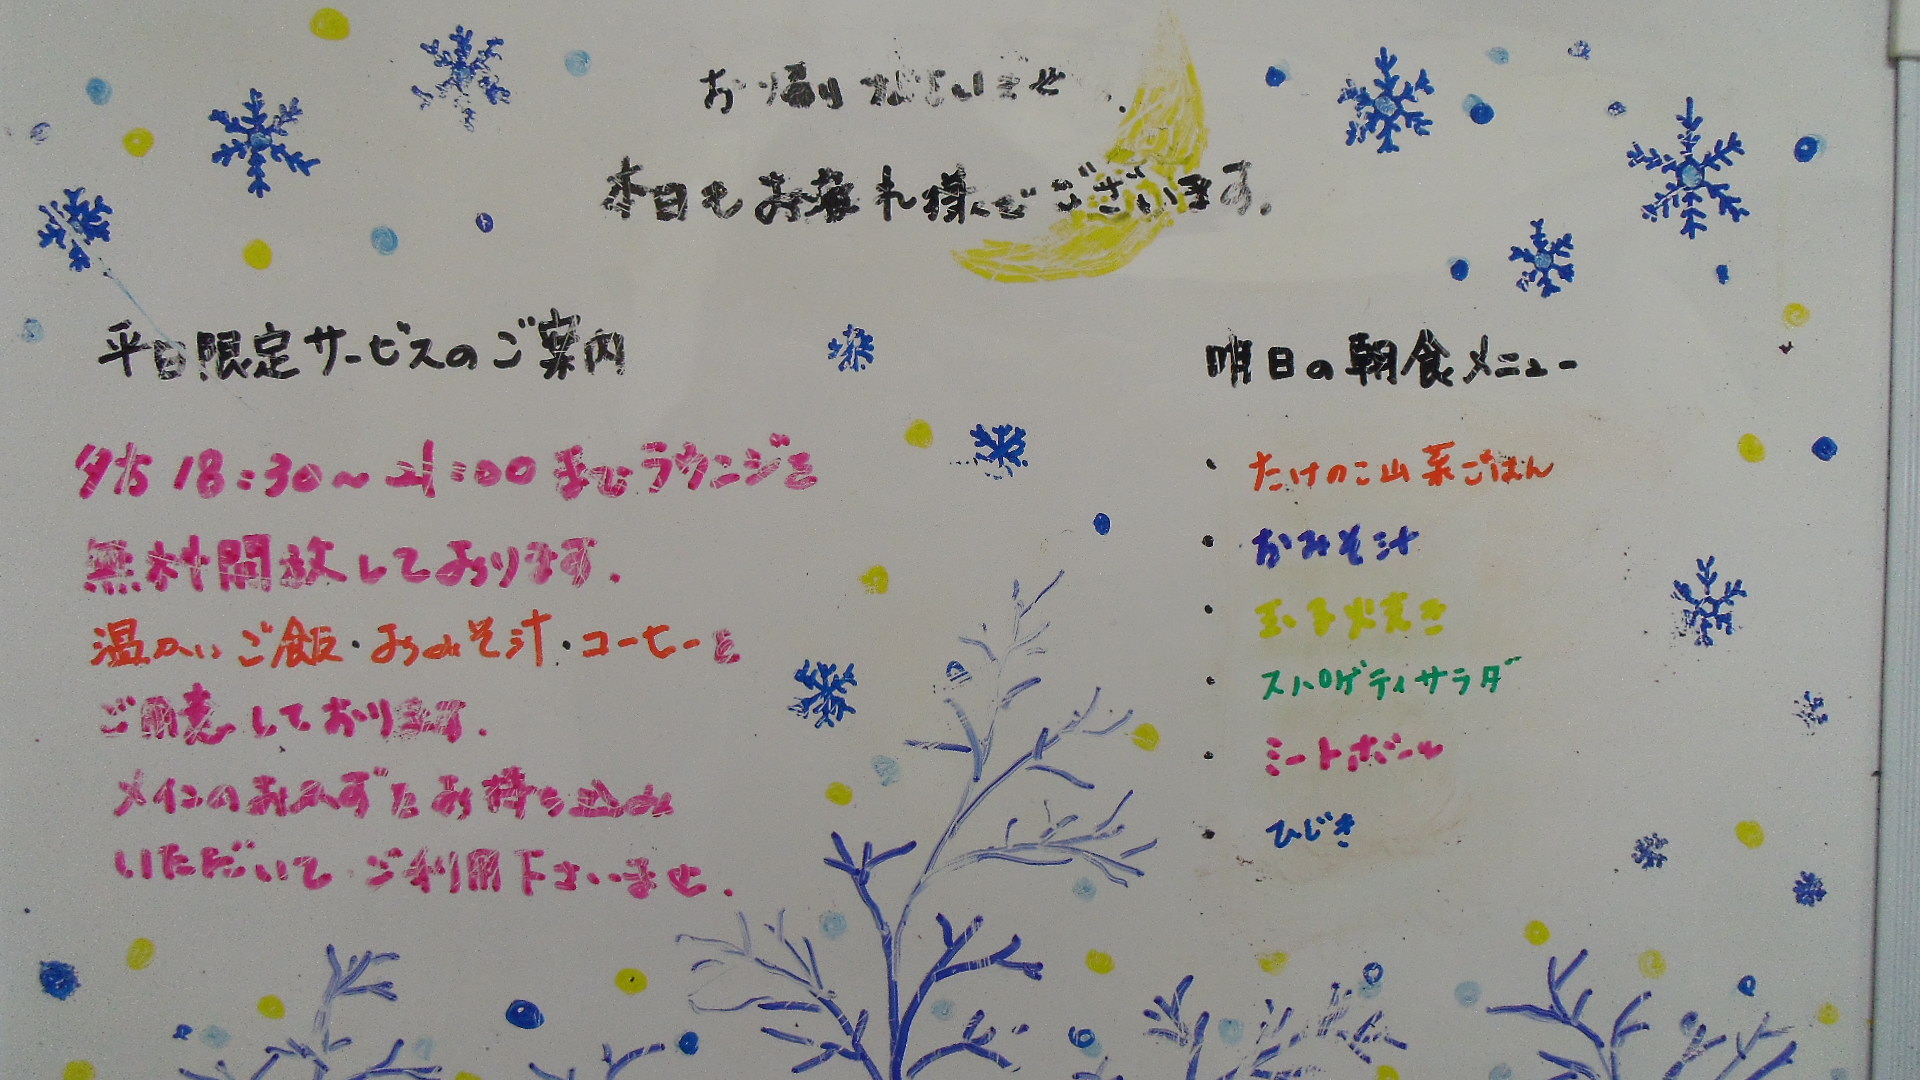 お帰りなさいませ
本日もお疲れ様でございます.
平日限定サービスのご案内
夕方 18:30～21:00までラウンジを
無料開放しております.
温かいご飯・おみそ汁・コーヒーを
ご用意しております.
メインのおかずをお持ち込み
いただいて ご利用下さいませ.
明日の朝食メニュー
・たけのこ山菜ごはん
・おみそ汁
・玉子焼き
・スパゲティサラダ
・ミートボール
・ひじき